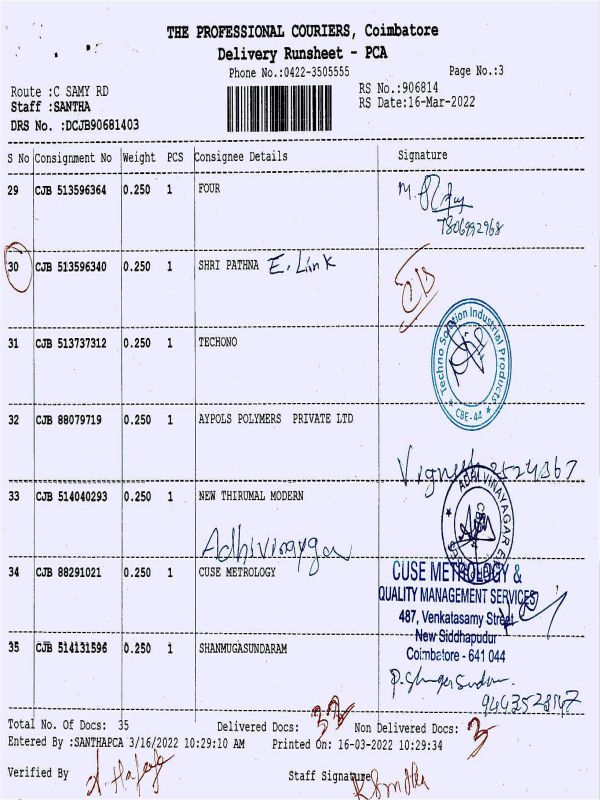 THE PROFESSIONAL COURIERS, Coimbatore
Delivery Runsheet - PCA
Phone No.:0422-3505555 Page No.:3
Route :C SAMY RD RS No.:906814
Staff :SANTHA RS Date:16-Mar-2022
DRS No. :DCJB90681403
S No Consignment No Weight PCS Consignee Details Signature
29 CJB 513596364 0.250 1 FOUR
30 CJB 513596340 0.250 1 SHRI PATHNA E. Link
31 CJB 513737312 0.250 1 TECHONO
Techno Solution Industrial Products
CBE-44
32 CJB 88079719 0.250 1 AYPOLS POLYMERS PRIVATE LTD
33 CJB 514040293 0.250 1 NEW THIRUMAL MODERN
ADHI VINAYAGAR
Adhivinaygar
34 CJB 88291021 0.250 1 CUSE METROLOGY
CUSE METROLOGY &
QUALITY MANAGEMENT SERVICES
487, Venkatasamy Street
New Siddhapudur
Coimbatore - 641 044
35 CJB 514131596 0.250 1 SHANMUGASUNDARAM
Total No. Of Docs: 35 Delivered Docs: 32 Non Delivered Docs: 3
Entered By :SANTHAPCA 3/16/2022 10:29:10 AM Printed On: 16-03-2022 10:29:34
Verified By Staff Signature